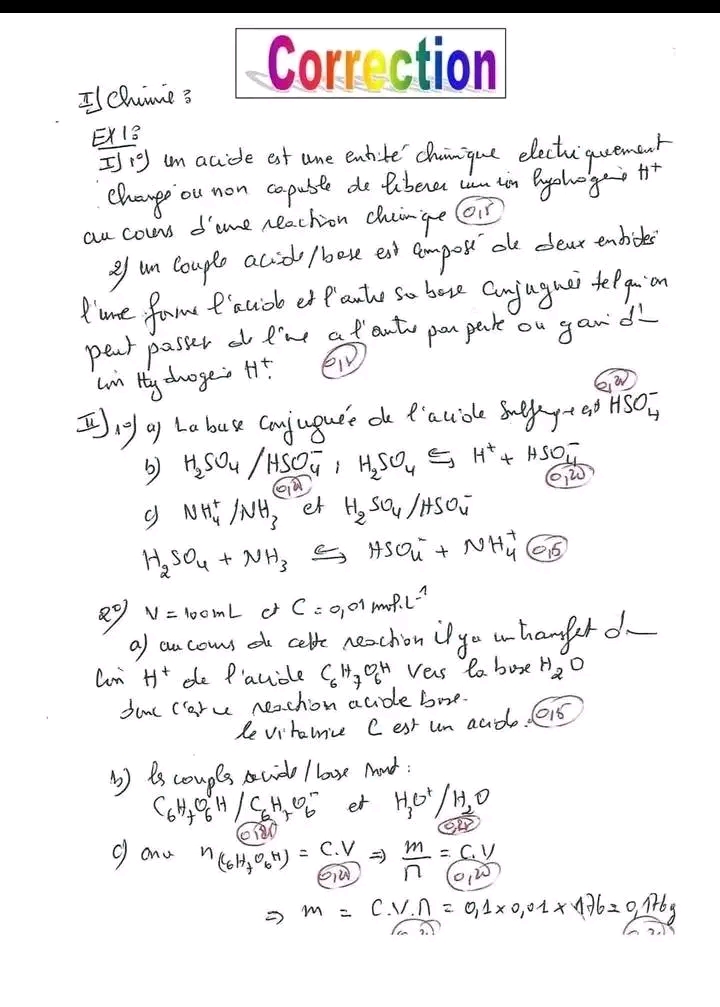 Correction
I) Chimie :
EX1 :
I) 1°) un acide est une entité chimique electriquement
chargé ou non capable de liberer un ion hydrogène H⁺
au cours d'une réaction chimique 0,5
2) un couple acide/base est composé de deux entités
l'une forme l'acide et l'autre sa base conjugués tel qu'on
peut passer de l'une a l'autre par perte ou gain d'
ion Hydrogène H⁺.
II) 1°) a) La base conjuguée de l'acide est HSO₄⁻
b) H₂SO₄/HSO₄⁻ ; H₂SO₄ ⇆ H⁺ + HSO₄⁻
c) NH₄⁺/NH₃ et H₂SO₄/HSO₄⁻
H₂SO₄ + NH₃ ⇆ HSO₄⁻ + NH₄⁺ 0,5
2°) V = 100mL et C = 0,01 mol.L⁻¹
a) au cours de cette reaction il ya un transfet d'
ion H⁺ de l'acide C₆H₇O₆H vers la base H₂O
donc c'est une reaction acide base.
le vitamine C est un acide. 0,5
b) les couples acide/base sont :
C₆H₇O₆H/C₆H₇O₆⁻ et H₃O⁺/H₂O
c) on a n(C₆H₇O₆H) = C.V ⇒ m/M = C.V
0,25 0,25
⇒ m = C.V.M = 0,1 × 0,01 × 176 = 0,176g